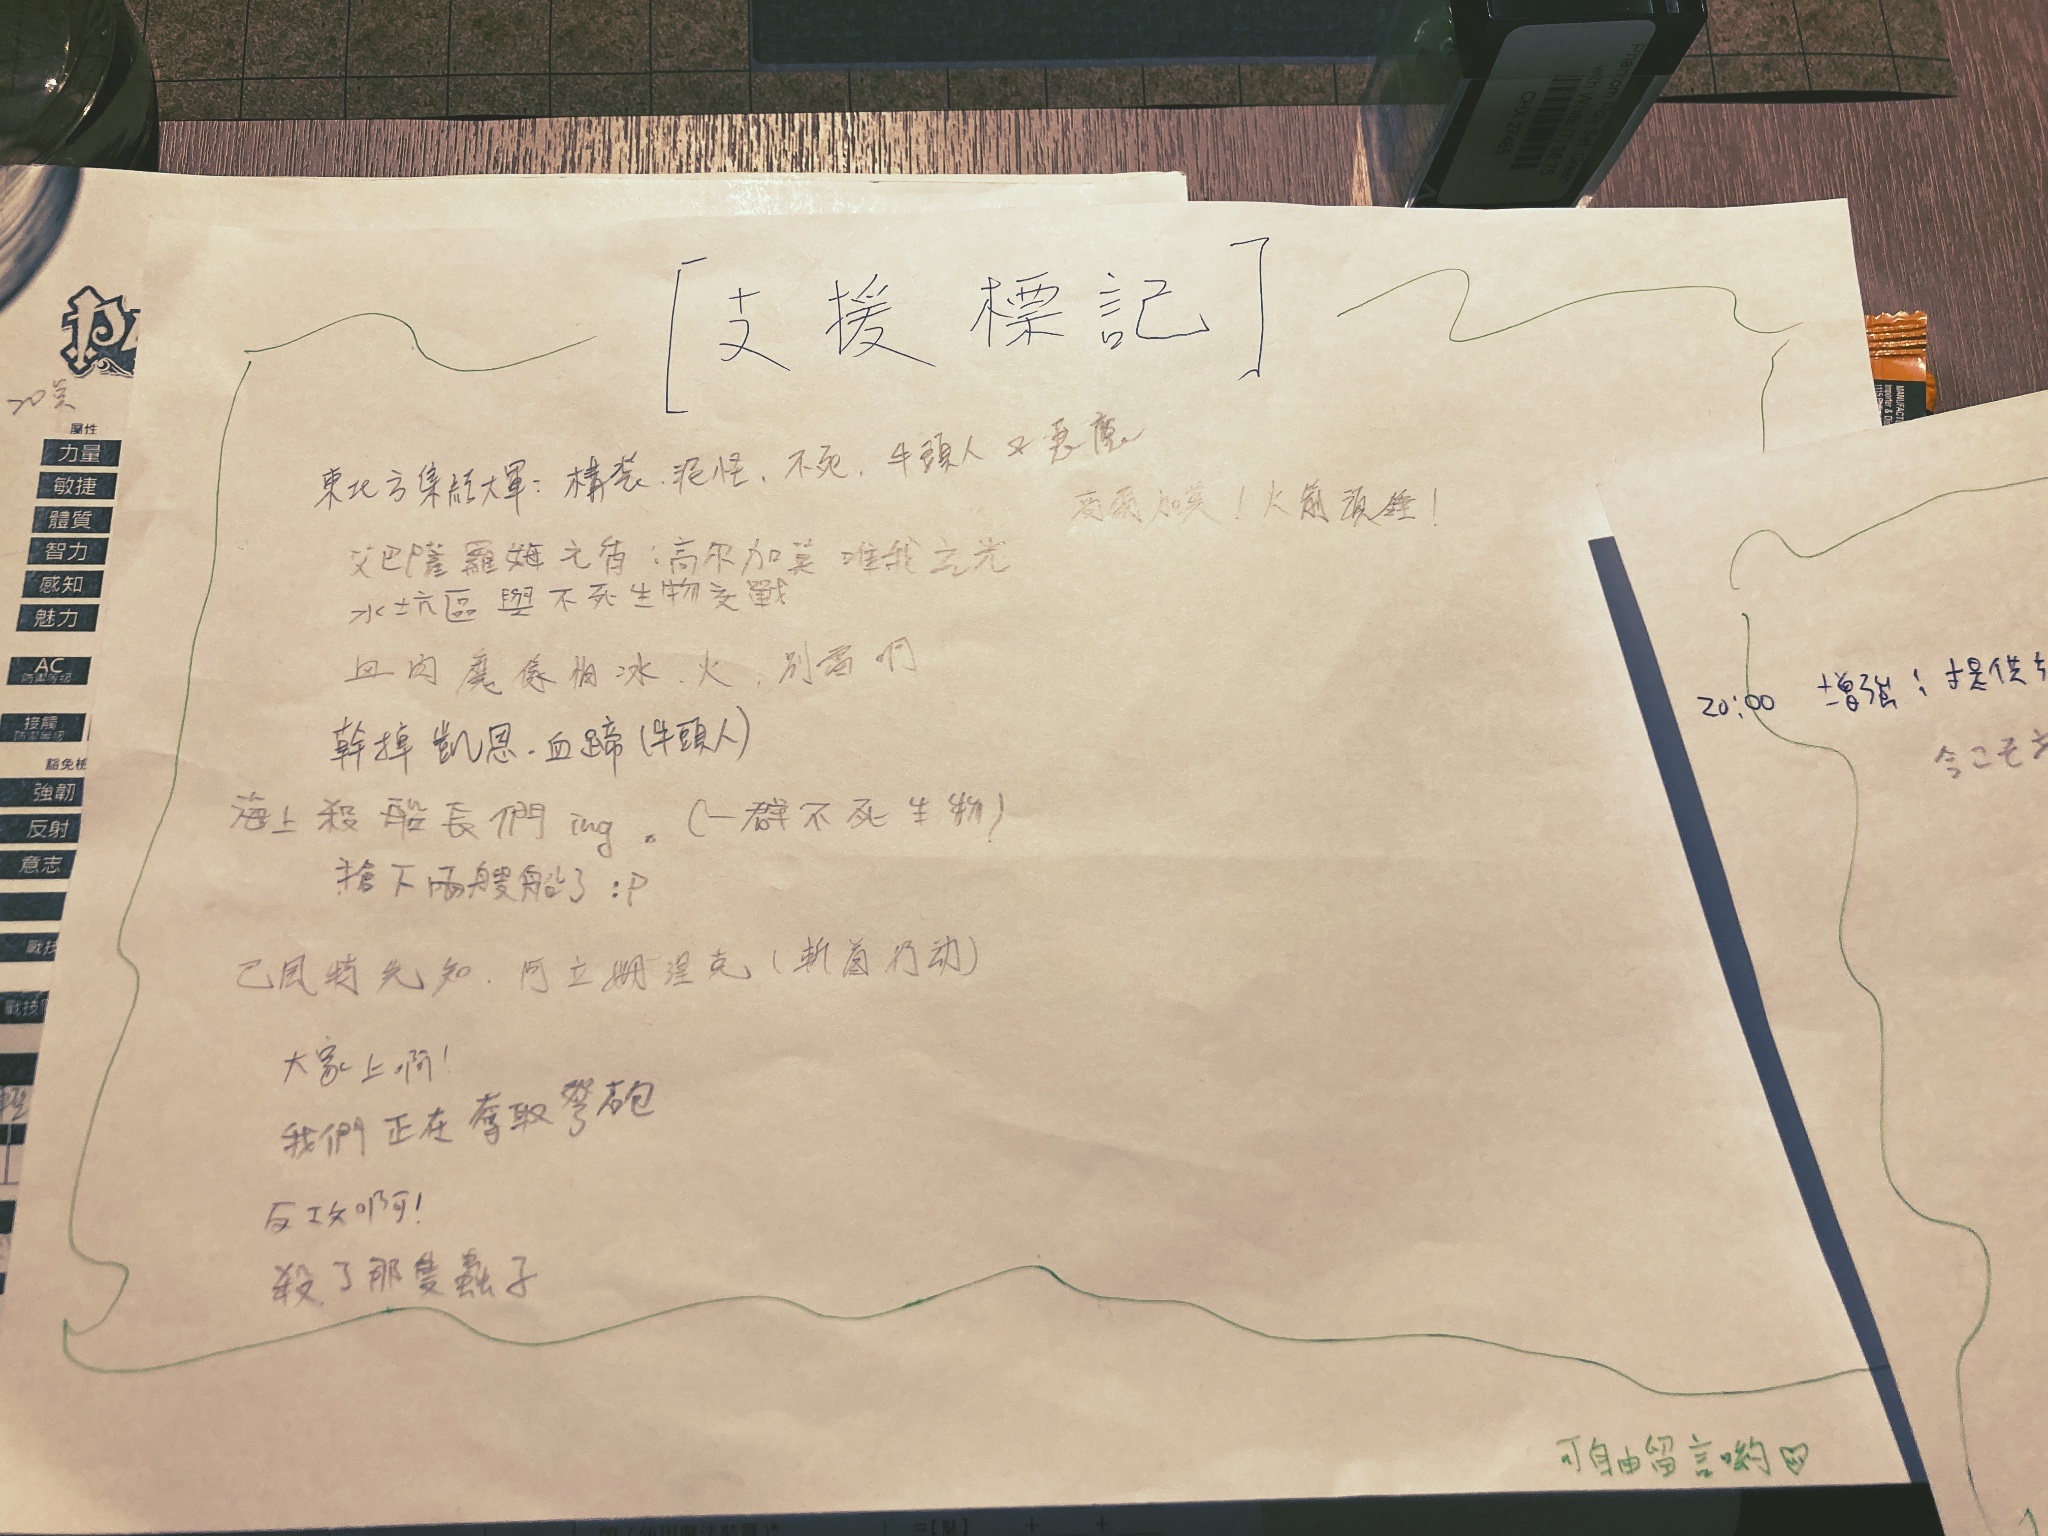 [支援標記]
東北方集結大軍：構裝、泥怪、不死、牛頭人 & 惡魔
高爾加莫！火箭頭錘！
艾巴薩羅姆元宵：高尔加莫唯我之光
水坑區與不死生物交戰
血肉魔像怕冰、火，別電啊
幹掉凱恩.血蹄(牛頭人)
海上殺船長們ing。(一群不死生物)
搶下兩艘船了 :P
己風特先知.阿立斯涅克(斬首行动)
大家上啊！
我們正在奪取弩砲
反攻啊！
殺了那隻蟲子
可自由留言喲
20:00 增強：提供
屬性
力量
敏捷
體質
智力
感知
魅力
AC
防禦等級
接觸
防禦等級
豁免檢
強韌
反射
意志
戰技
戰技
O-YX-37465